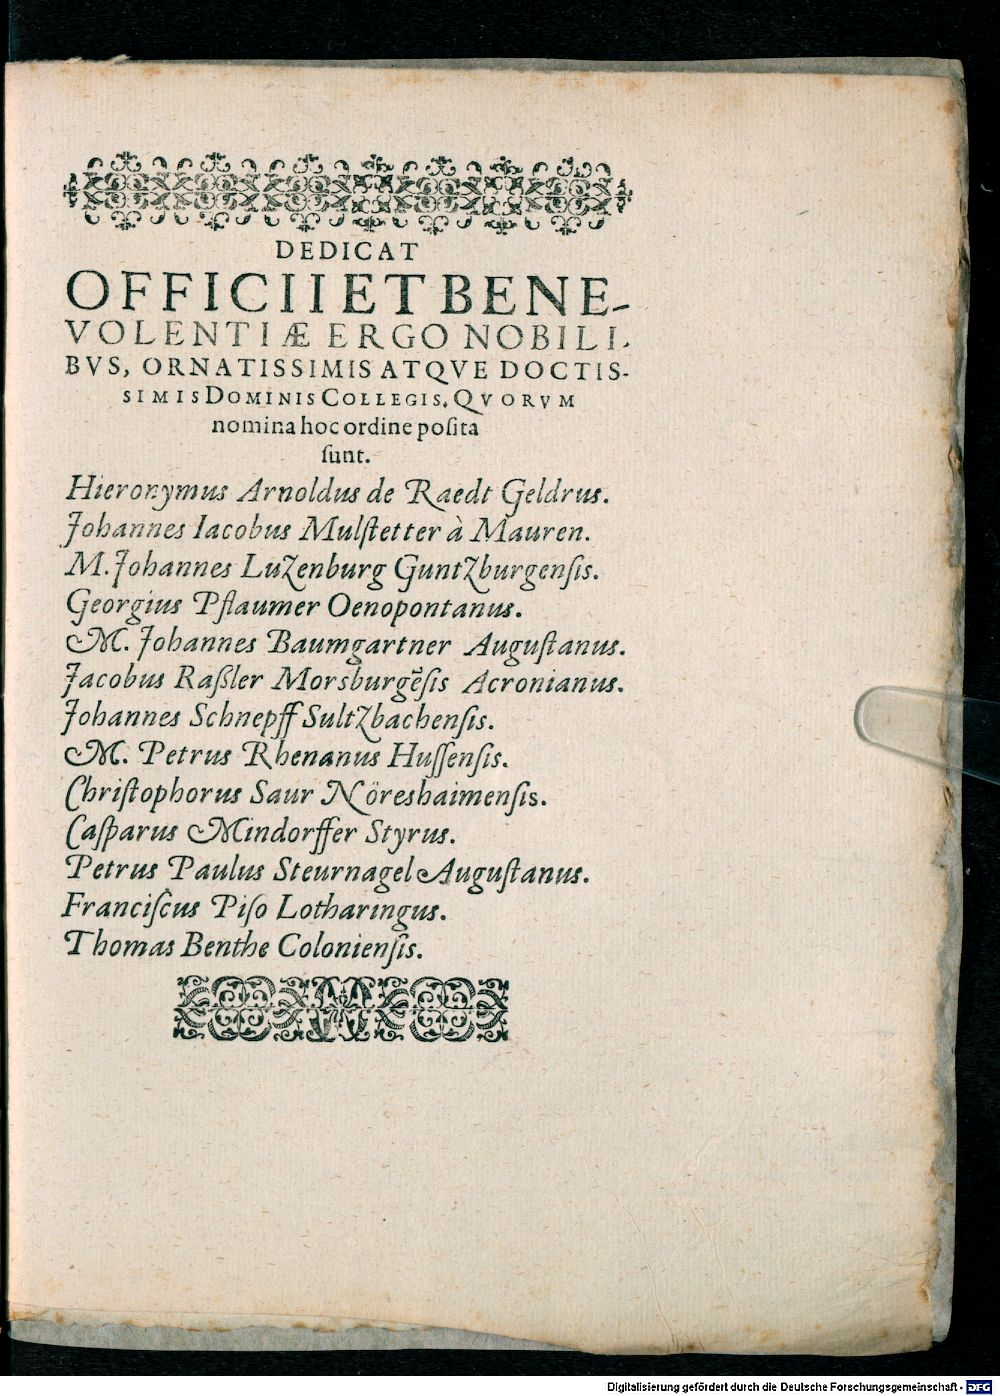 DEDICAT
OFFICII ET BENE-
VOLENTIÆ ERGO NOBILI-
BVS, ORNATISSIMIS ATQVE DOCTIS-
SIMIS DOMINIS COLLEGIS, QVORVM
nomina hoc ordine poſita
ſunt.
Hieronymus Arnoldus de Raedt Geldrus.
Johannes Iacobus Mulſtetter à Mauren.
M. Johannes Luzenburg Guntzburgenſis.
Georgius Pflaumer Oenopontanus.
M. Johannes Baumgartner Auguſtanus.
Jacobus Raßler Morsburgẽſis Acronianus.
Johannes Schnepff Sultzbachenſis.
M. Petrus Rhenanus Huſſenſis.
Chriſtophorus Saur Nöreshaimenſis.
Caſparus Mindorffer Styrus.
Petrus Paulus Steurnagel Auguſtanus.
Franciſcus Piſo Lotharingus.
Thomas Benthe Colonienſis.
Digitalisierung gefördert durch die Deutsche Forschungsgemeinschaft - DFG